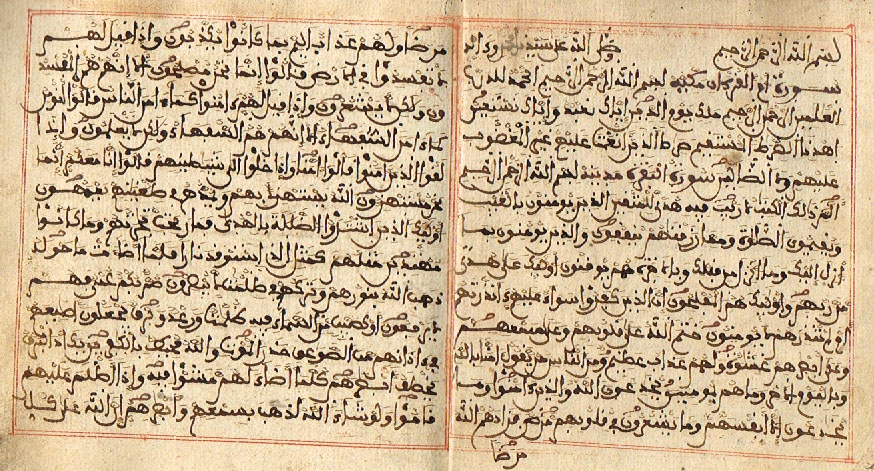 بسم الله الرحمن الرحيم وصلى الله على سيدنا محمد وءاله
سورة ام القرءان مكية بسم الله الرحمن الرحيم الحمد لله رب
العلمين الرحمن الرحيم ملك يوم الدين اياك نعبد واياك نستعين
اهدنا الصرط المستقيم صرط الذين انعمت عليهم غير المغضوب
عليهم ولا الضالين سورة البقرة مدنية بسم الله الرحمن الرحيم
الم ذلك الكتب لا ريب فيه هدى للمتقين الذين يومنون بالغيب
ويقيمون الصلوة ومما رزقنهم ينفقون والذين يومنون بما
أنزل اليك وما انزل من قبلك وبالاخرة هم يوقنون اولئك على هدى
من ربهم واولئك هم المفلحون ان الذين كفروا سواء عليهم ءانذرتهم
ام لم تنذرهم لا يومنون ختم الله على قلوبهم وعلى سمعهم
وعلى ابصرهم غشوة ولهم عذاب عظيم ومن الناس من يقول ءامنا بالله
وباليوم الاخر وما هم بمومنين يخدعون الله والذين ءامنوا وما
يخدعون الا انفسهم وما يشعرون في قلوبهم مرض فزادهم الله
مرضا
مرضا ولهم عذاب اليم بما كانوا يكذبون واذا قيل لهم
لا تفسدوا في الارض قالوا انما نحن مصلحون الا انهم هم المفسد
ون ولكن لا يشعرون واذا قيل لهم ءامنوا كما ءامن الناس قالوا انومن
كما ءامن السفهاء الا انهم هم السفهاء ولكن لا يعلمون واذا
لقوا الذين ءامنوا قالوا ءامنا واذا خلوا الى شيطينهم قالوا إنا معكم إنما
نحن مستهزءون الله يستهزئ بهم ويمدهم في طغينهم يعمهون
اولئك الذين اشتروا الضللة بالهدى فما ربحت تجرتهم وما كانوا
مهتدين مثلهم كمثل الذي استوقد نارا فلما اضاءت ما حوله
ذهب الله بنورهم وتركهم في ظلمت لا يبصرون صم بكم عمي فهم
لا يرجعون او كصيب من السماء فيه ظلمت ورعد وبرق يجعلون اصبعهم
في ءاذانهم من الصوعق حذر الموت والله محيط بالكفرين يكاد البرق
يخطف ابصرهم كلما اضاء لهم مشوا فيه واذا اظلم عليهم
قاموا ولو شاء الله لذهب بسمعهم وابصرهم إن الله على كل